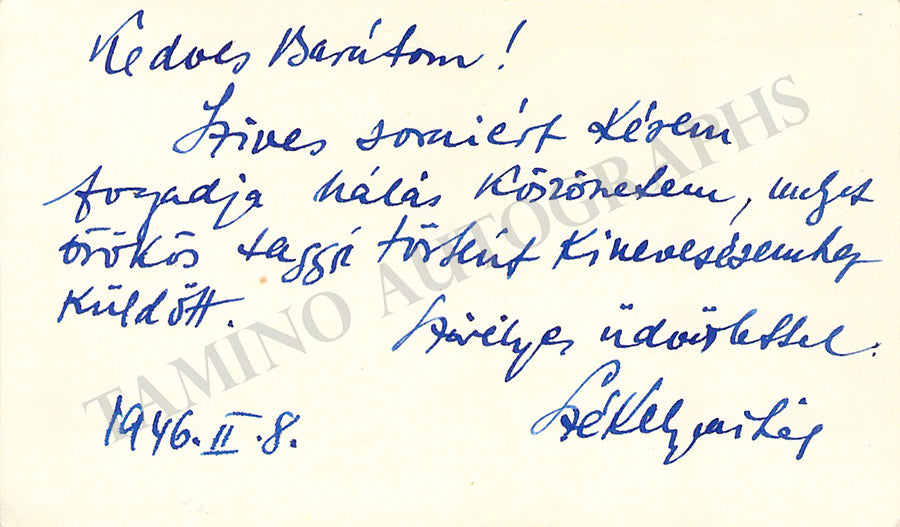 Kedves Barátom!
Szives soraiért kérem
fogadja hálás köszönetem, melyet
örökös taggá történt kinevezésemhez
küldött.
Szívélyes üdvözlettel.
1946. II. 8.
Székelyhidy
TAMINO AUTOGRAPHS